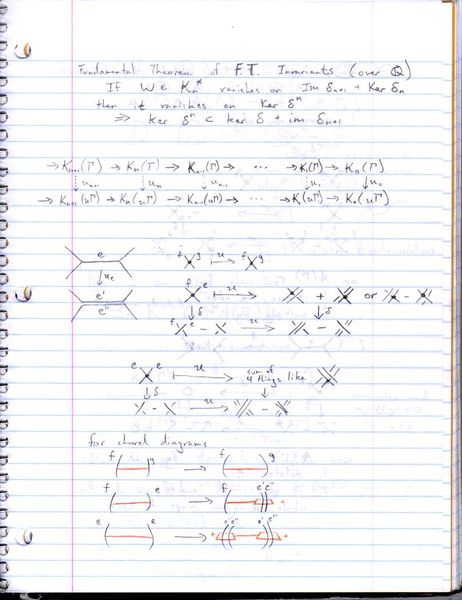 Fundamental Theorem of F.T. Invariants (over ℚ)
If W ∈ Kₙ* vanishes on Im δₙ₊₁ + Ker δₙ
then it vanishes on Ker δⁿ
⇒ ker δⁿ ⊂ ker δ + im δₙ₊₁
→ Kₙ₊₁(Γ) → Kₙ(Γ) → Kₙ₋₁(Γ) → ... → K₁(Γ) → K₀(Γ)
↓uₙ₊₁ ↓uₙ ↓uₙ₋₁ ↓u₁ ↓u₀
→ Kₙ₊₁(uΓ) → Kₙ(uΓ) → Kₙ₋₁(uΓ) → ... → K₁(uΓ) → K₀(uΓ)
e f g u f g
↓uₑ
e' f e u + or -
e'' ↓δ ↓δ
f e - u -
e e u sum of
4 things like
↓δ ↓
- u -
for chord diagrams
f g → f g
f e → f e' e'' +
e e → + e' e'' e' e'' +